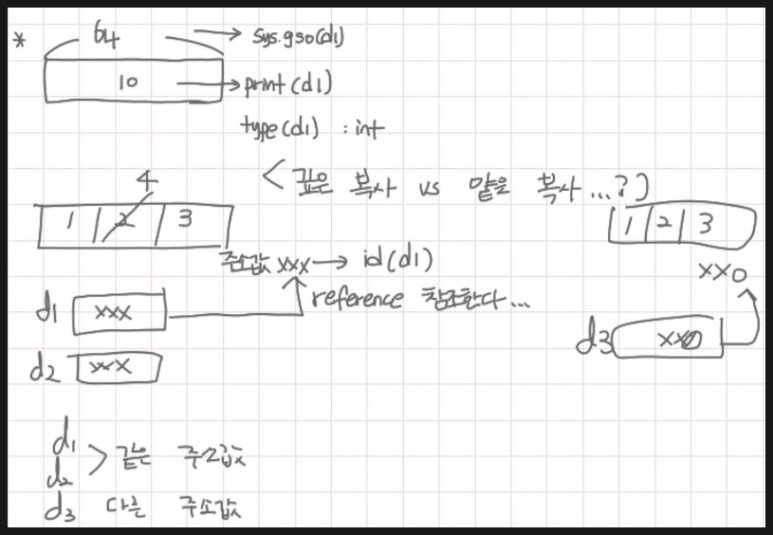 * 64 → sys.gso(d1)
10 → print(d1)
type(d1) : int
< 깊은 복사 vs 얕은 복사...?)
4
1 2 3
1 2 3
주소값 xxx → id(d1)
xx0
reference 참조한다...
d1 xxx
d3 xx0
d2 xxx
d1
d2 > 같은 주소값
d3 다른 주소값